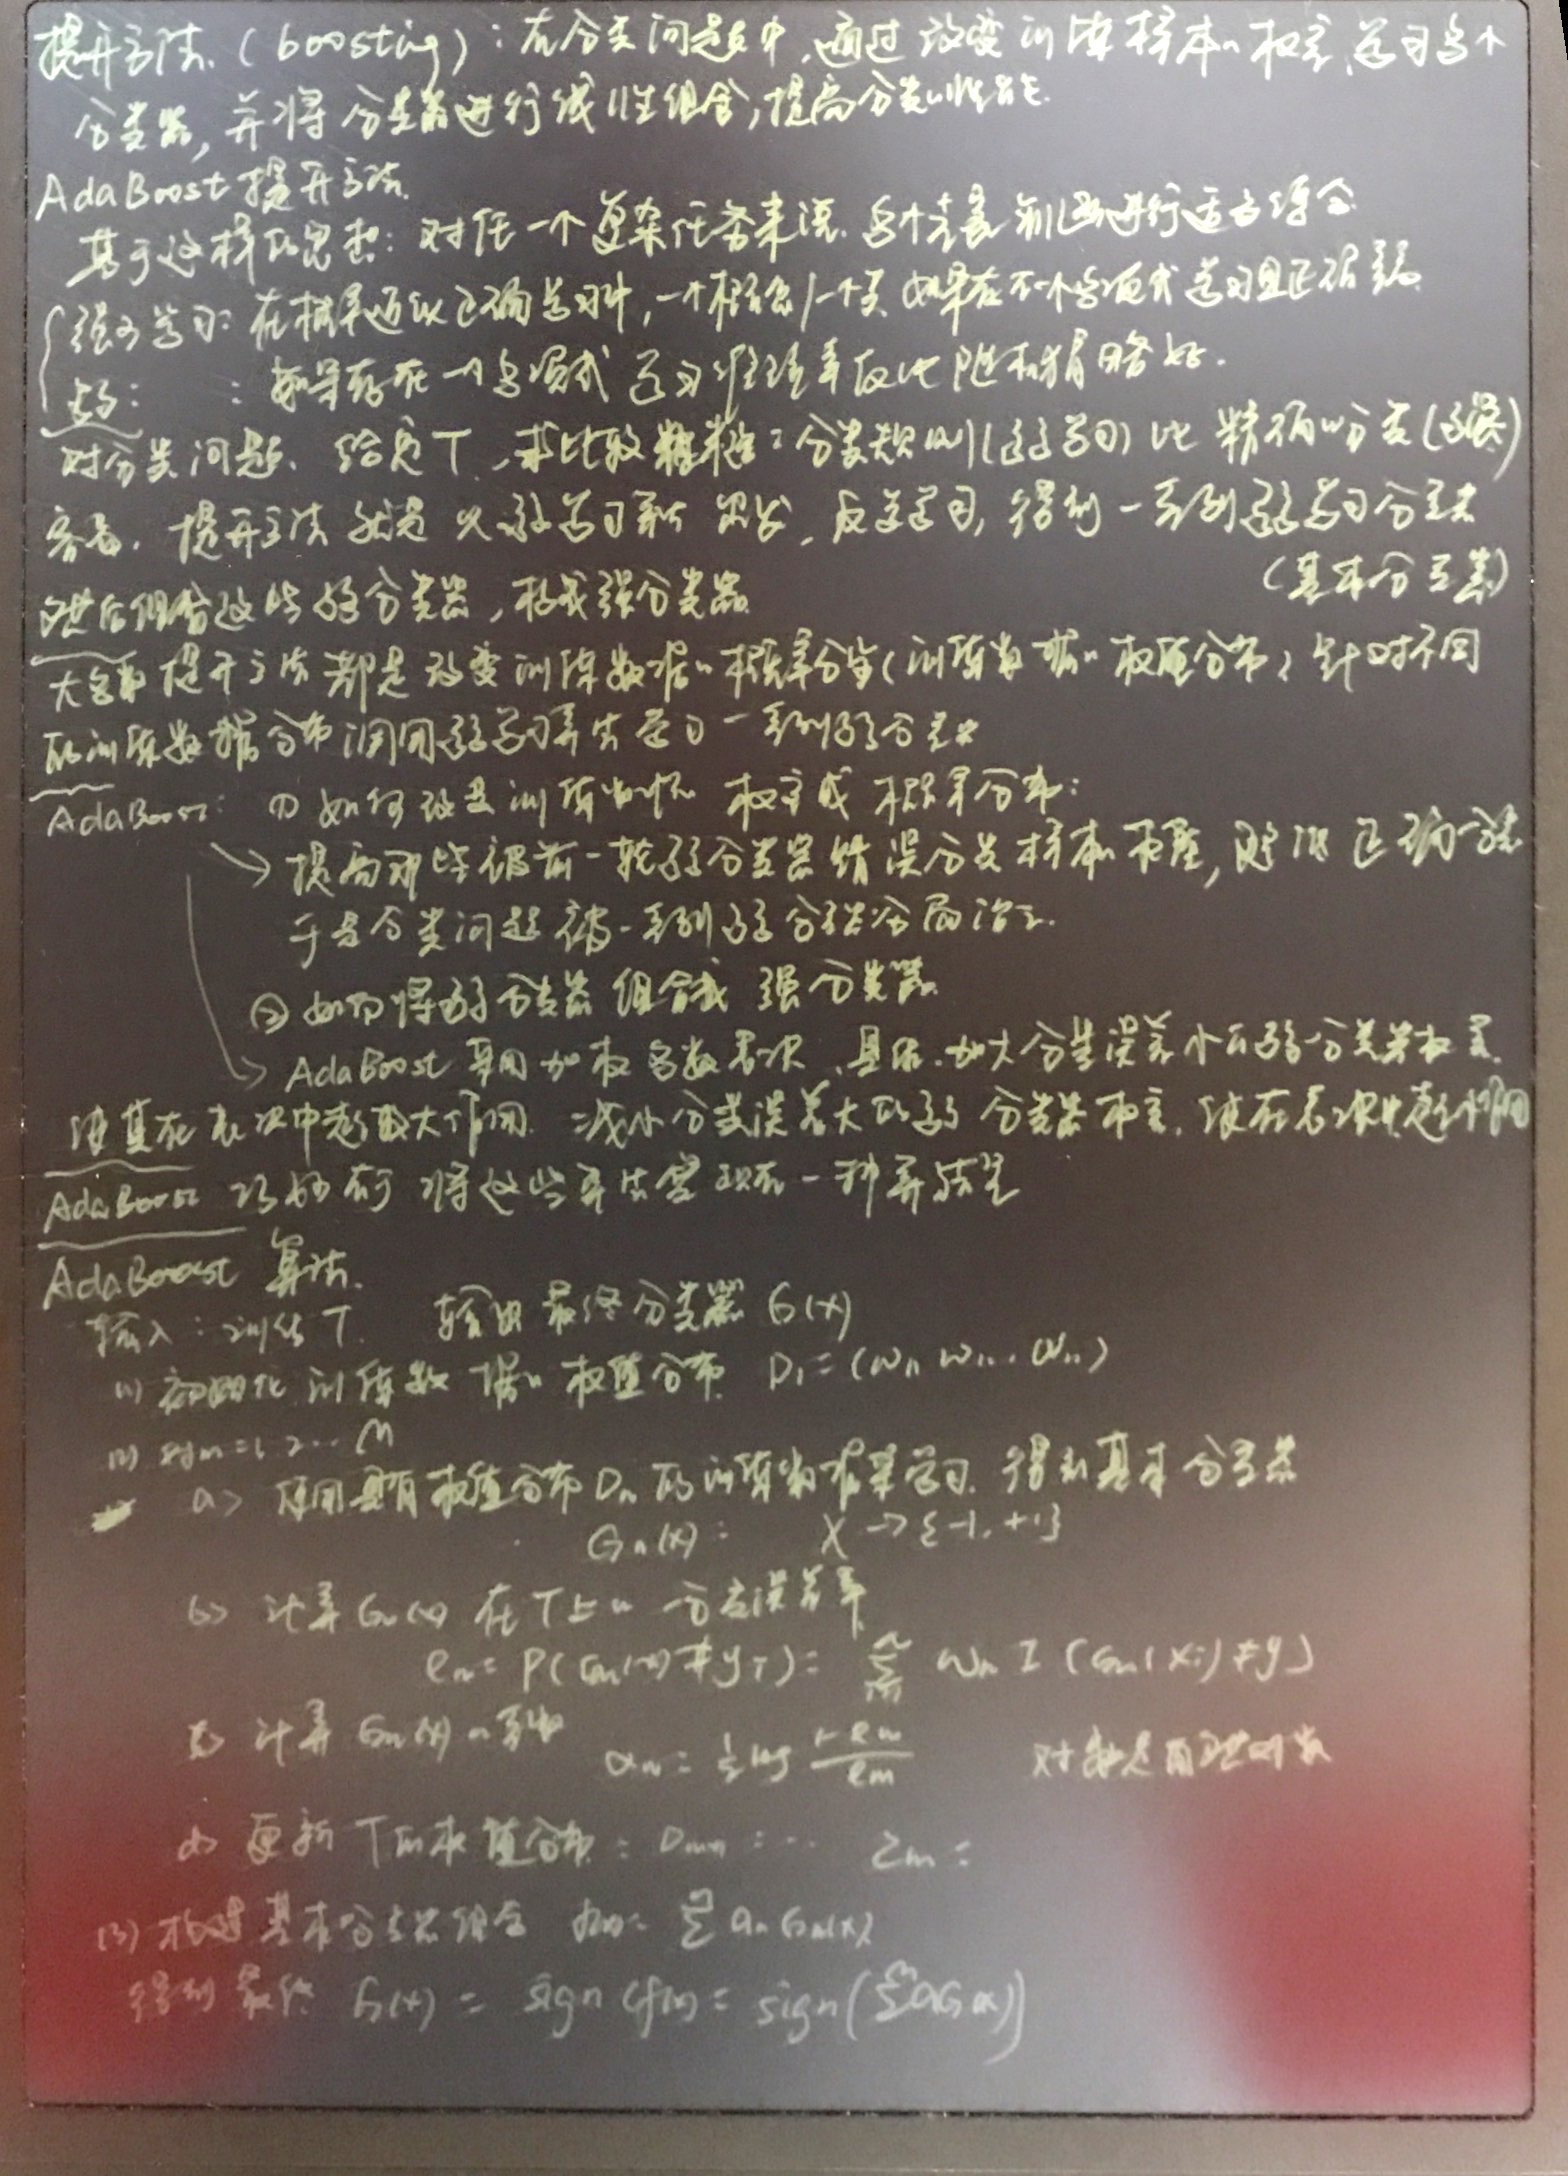 提升方法 (boosting): 在分类问题中,通过改变训练样本的权重,学习多个
分类器,并将分类器进行线性组合,提高分类的性能.
AdaBoost 提升方法.
基于这样的思想: 对于一个复杂任务来说. 多个专家判断进行适当综合
强可学习: 在概率近似正确学习中, 一个概念/一个类 如果存在一个多项式 学习且正确率高
弱: : 如果存在一个多项式 学习 正确率仅比随机猜略好.
对分类问题. 给定T, 求比较粗糙的分类规则(弱学习) 比 精确的分类(强)
容易. 提升方法就是从弱学习算法出发, 反复学习, 得到一系列弱学习分类器
(基本分类器)
然后组合这些弱分类器, 构成强分类器
大多数提升方法都是改变训练数据的概率分布(训练数据的权值分布) 针对不同
的训练数据分布调用弱学习算法学习一系列弱分类器
AdaBoost: ① 如何改变训练数据 权重或概率分布:
提高那些被前一轮弱分类器错误分类样本的权重, 降低正确分类
于是分类问题被一系列弱分类器分而治之.
② 如何将弱分类器 组合成 强分类器
AdaBoost 采用加权多数表决, 具体. 加大分类误差小的弱分类器权重.
使其在表决中起较大作用. 减小分类误差大的弱分类器权重. 使在表决中起小作用
AdaBoost 巧妙在于 将这些算法实现在一种算法里
AdaBoost 算法.
输入: 训练T. 输出 最终分类器 G(x)
(1) 初始化 训练数据的权值分布 D₁=(w₁₁ w₁₂... w₁ₙ)
(2) 对m=1, 2... M
a> 使用具有权值分布 Dₘ 的训练数据集学习. 得到基本分类器
Gₘ(x): X → {-1, +1}
b> 计算Gₘ(x) 在T上的 分类误差率
eₘ= P(Gₘ(xᵢ)≠yᵢ)= Σ wₘ I (Gₘ(xᵢ)≠y)
计算 Gₘ(x)的系数 αₘ= ½ log (1-eₘ)/eₘ 对数是自然对数
d> 更新T的权值分布: Dₘ₊₁ : ... Zₘ =
(3) 构建基本分类器组合 f(x)= Σ αₘ Gₘ(x)
得到最终 G(x) = sign (f(x) = sign(Σ αG(x))